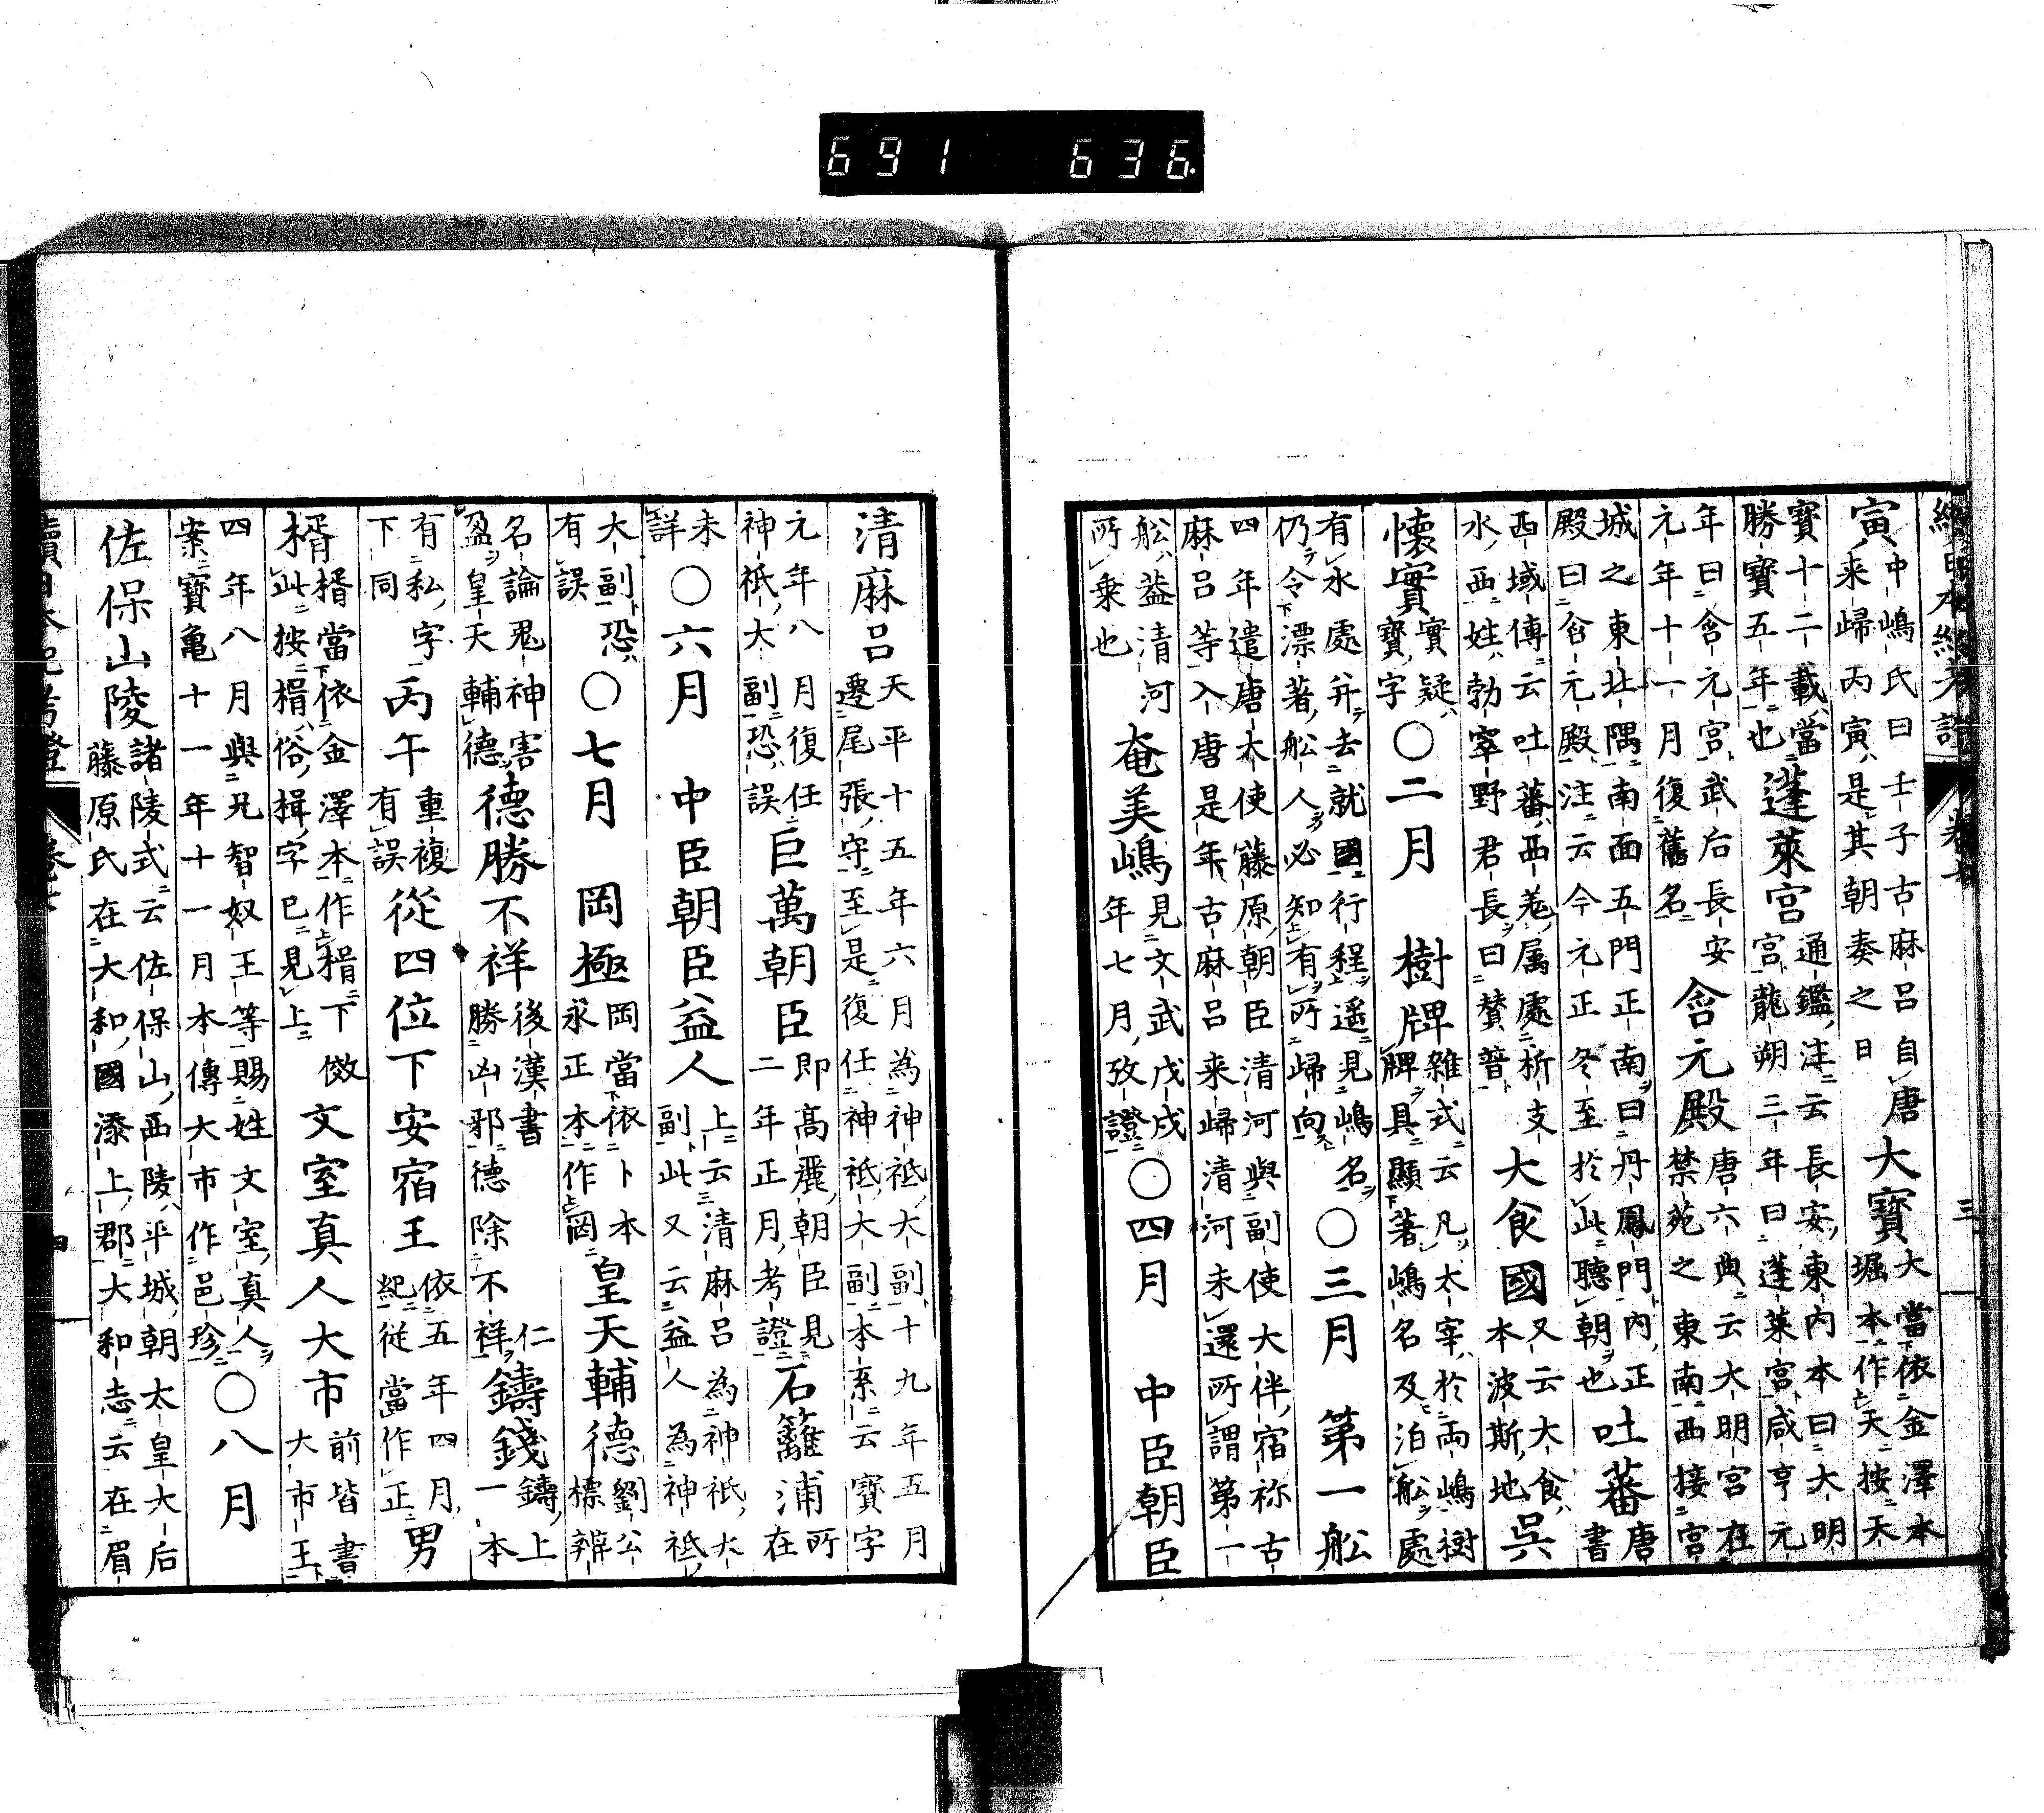 續日本紀考證 卷七 三
寅中嶋氏曰壬子古麻呂自唐来歸丙寅是其朝奏之日大寶大當依金澤本堀本作天按天
寶十二載當勝寶五年也蓬萊宮通鑑注云長安東内本曰大明宮龍朔三年曰蓬萊宮咸亨元
年曰含元宮武后長安元年十一月復舊名含元殿唐六典云大明宮在禁苑之東南西接宮
城之東北隅南面五門正南曰丹鳳門内正殿曰含元殿注云今元正冬至於此聽朝也吐蕃唐書
西域傳云吐蕃西羌属處析支水西姓勃窣野君長曰賛普大食國又云大食本波斯地呉
懐實實疑寶字〇二月 樹牌雜式云凡太宰於両嶋樹牌具顯著嶋名及泊舩處
有水處并去就國行程遥見嶋名仍令漂著舩人必知有所歸向〇三月 第一舩
四年遣唐大使藤原朝臣清河與副使大伴宿祢古麻呂等入唐是年古麻呂来歸清河未還所謂第一
舩蓋清河所乗也奄美嶋見文武戊戌年七月攷證〇四月 中臣朝臣
清麻呂天平十五年六月為神祇大副十九年五月遷尾張守至是復任神祇大副本系云寶字
元年八月復任神祇大副恐誤巨萬朝臣即高麗朝臣見二年正月考證石籬浦所在
未詳〇六月 中臣朝臣益人上云清麻呂為神祇大副此又云益人為神祇
大副恐有誤〇七月 岡極岡當依卜本永正本作罔皇天輔德劉公標辨
名論鬼神害盈皇天輔德德勝不祥後漢書仁勝凶邪德除不祥鑄錢鑄上一本
有私字下同丙午重複有誤從四位下安宿王依五年四月紀從當作正男
楈楈當依金澤本作楫下倣此按楫俗楫字已見上文室真人大市前皆書大市王
四年八月與兄智奴王等賜姓文室真人案寶亀十一年十一月本傳大市作邑珍〇八月
佐保山陵諸陵式云佐保山西陵平城朝太皇大后藤原氏在大和國添上郡大和志云在眉
續日本紀考證 卷七 四
691 636.